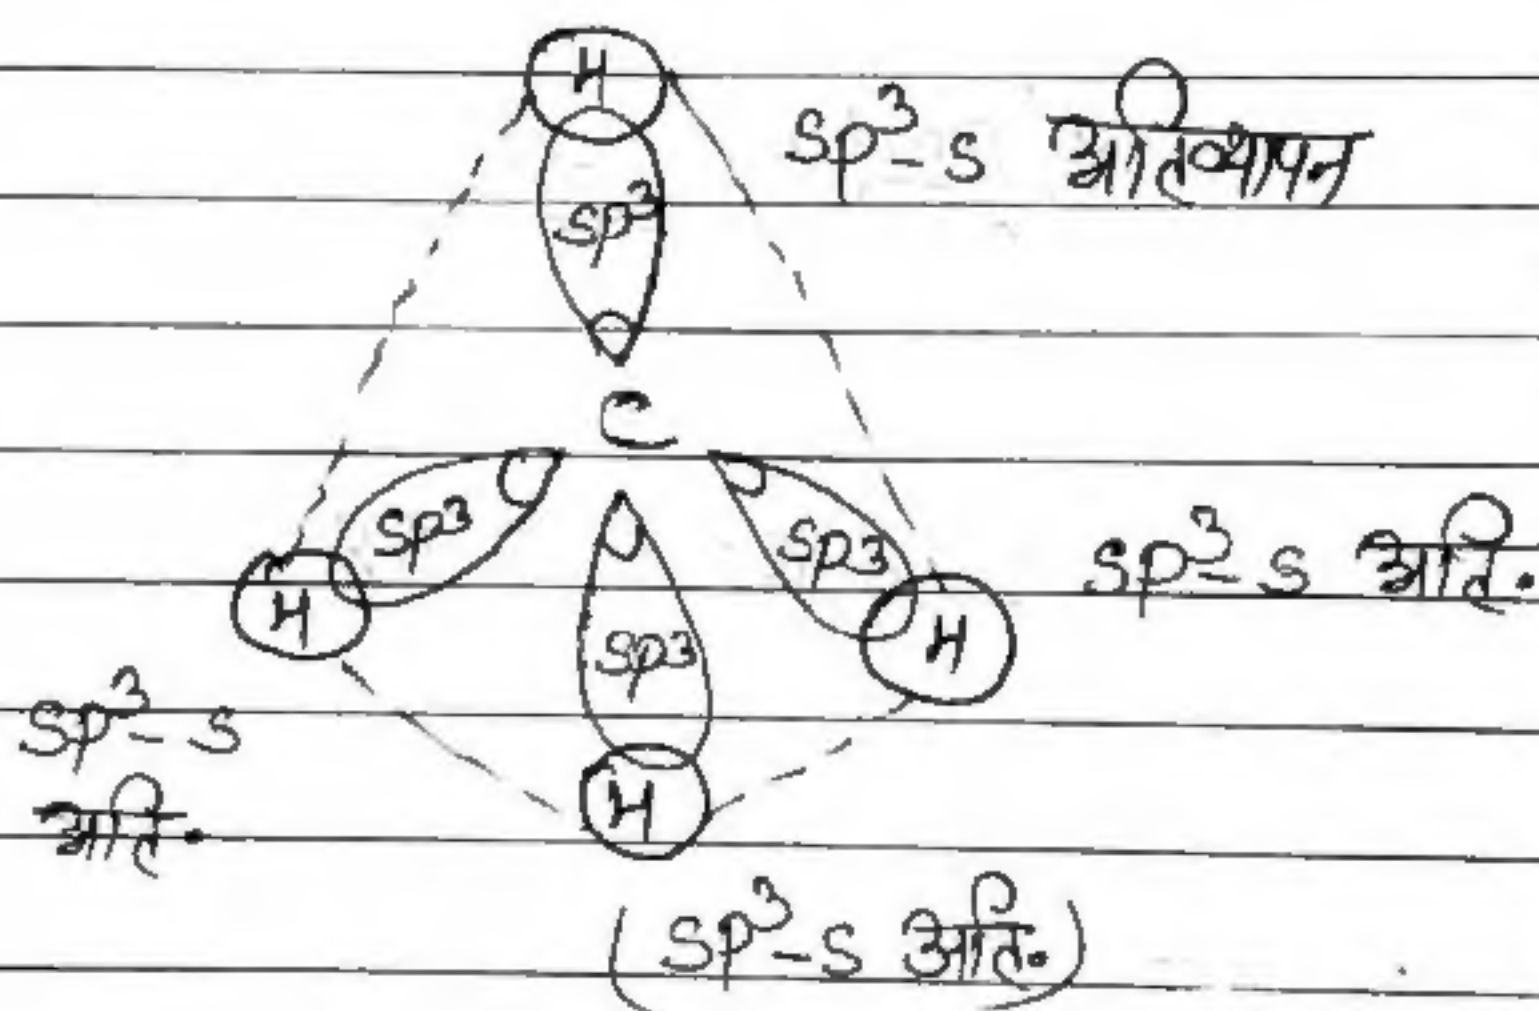 H
sp³-s अतिव्यापन
sp³
C
sp3
sp3
sp³-s अति.
H
sp3
H
sp³-s
अति.
H
(sp³-s अति.)